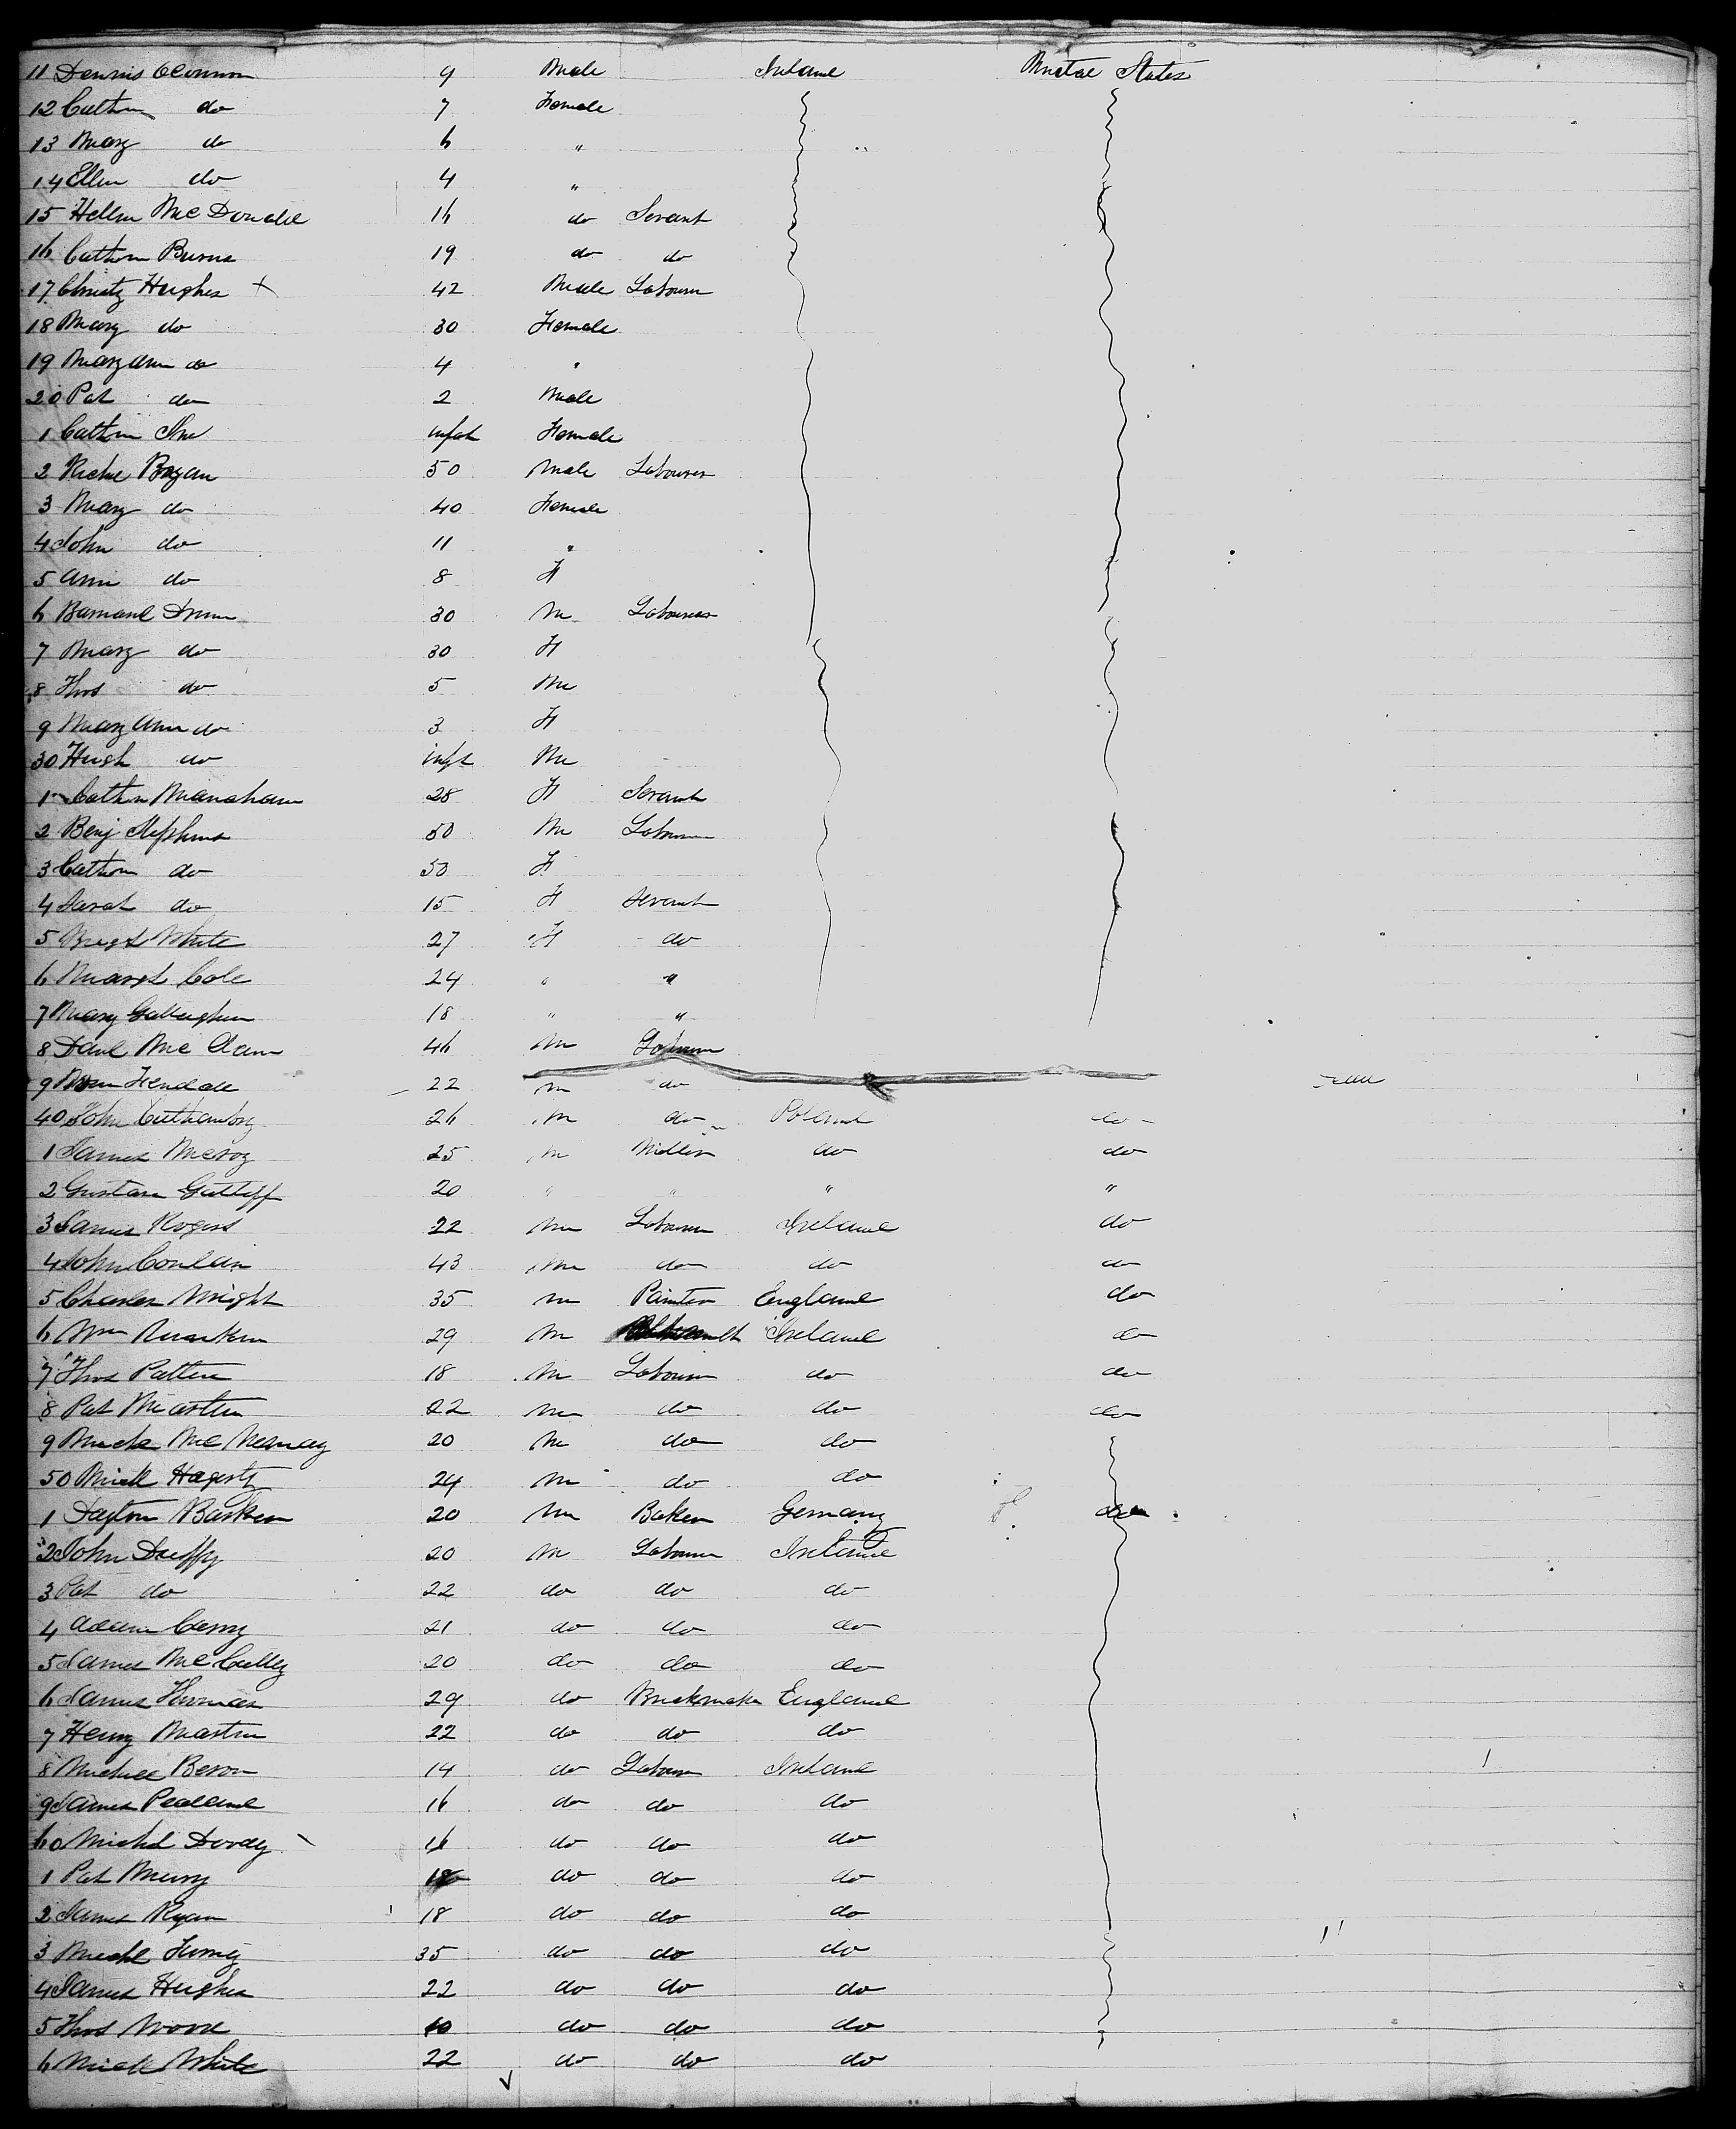 11 Dennis OConnor 9 Male Ireland United States
12 Cathrn do 7 Female
13 Mary do 6 "
14 Ellen do 4 "
15 Hellen McDonald 16 do Servant
16 Cathrn Burns 19 do do
17 Christy Hughes + 42 Male Labourer
18 Mary do 30 Female
19 Mary Ann do 4 "
20 Pat do 2 Male
1 Cathrn infant Female
2 Bryan 50 Male Labourer
3 Mary do 40 Female
4 John do 11 "
5 Ann do 8 F
6 30 M Labourer
7 Mary do 30 F
8 Thos do 5 M
9 Mary Ann do 3 F
30 Hugh do inft M
1 Cathrn Manahan 28 F Servant
2 Benj Stephens 50 M Labourer
3 Cathrn do 50 F
4 Sarah do 15 F Servant
5 White 27 F do
6 Margt Cole 24 " "
7 Mary Gallagher 18 " "
8 46 M Labourer
9 22 M do
40 John 26 M do Poland do
1 James 25 M Miller do do
2 Gustave 20 " " " "
3 James Rogers 22 M Labourer Ireland do
4 John Conlan 43 M do do do
5 Charles Wright 35 M Painter England do
6 Wm 29 M Ireland do
7 Thos Patten 18 M Labourer do do
8 Pat Martin 22 M do do do
9 20 M do do
50 Mick Hagerty 24 M do do
1 20 M Baker Germany do
2 John Duffy 20 M Labourer Ireland
3 Pat do 22 do do do
4 Adam 21 do do do
5 James McCulley 20 do do do
6 James Thomas 29 do Brickmaker England
7 Henry Martin 22 do do do
8 14 do Labourer Ireland
9 James 16 do do do
60 16 do do do
1 Pat 18 do do do
2 James Ryan 18 do do do
3 35 do do do
4 James Hughes 22 do do do
5 Thos do do do
6 Mick White 22 do do do